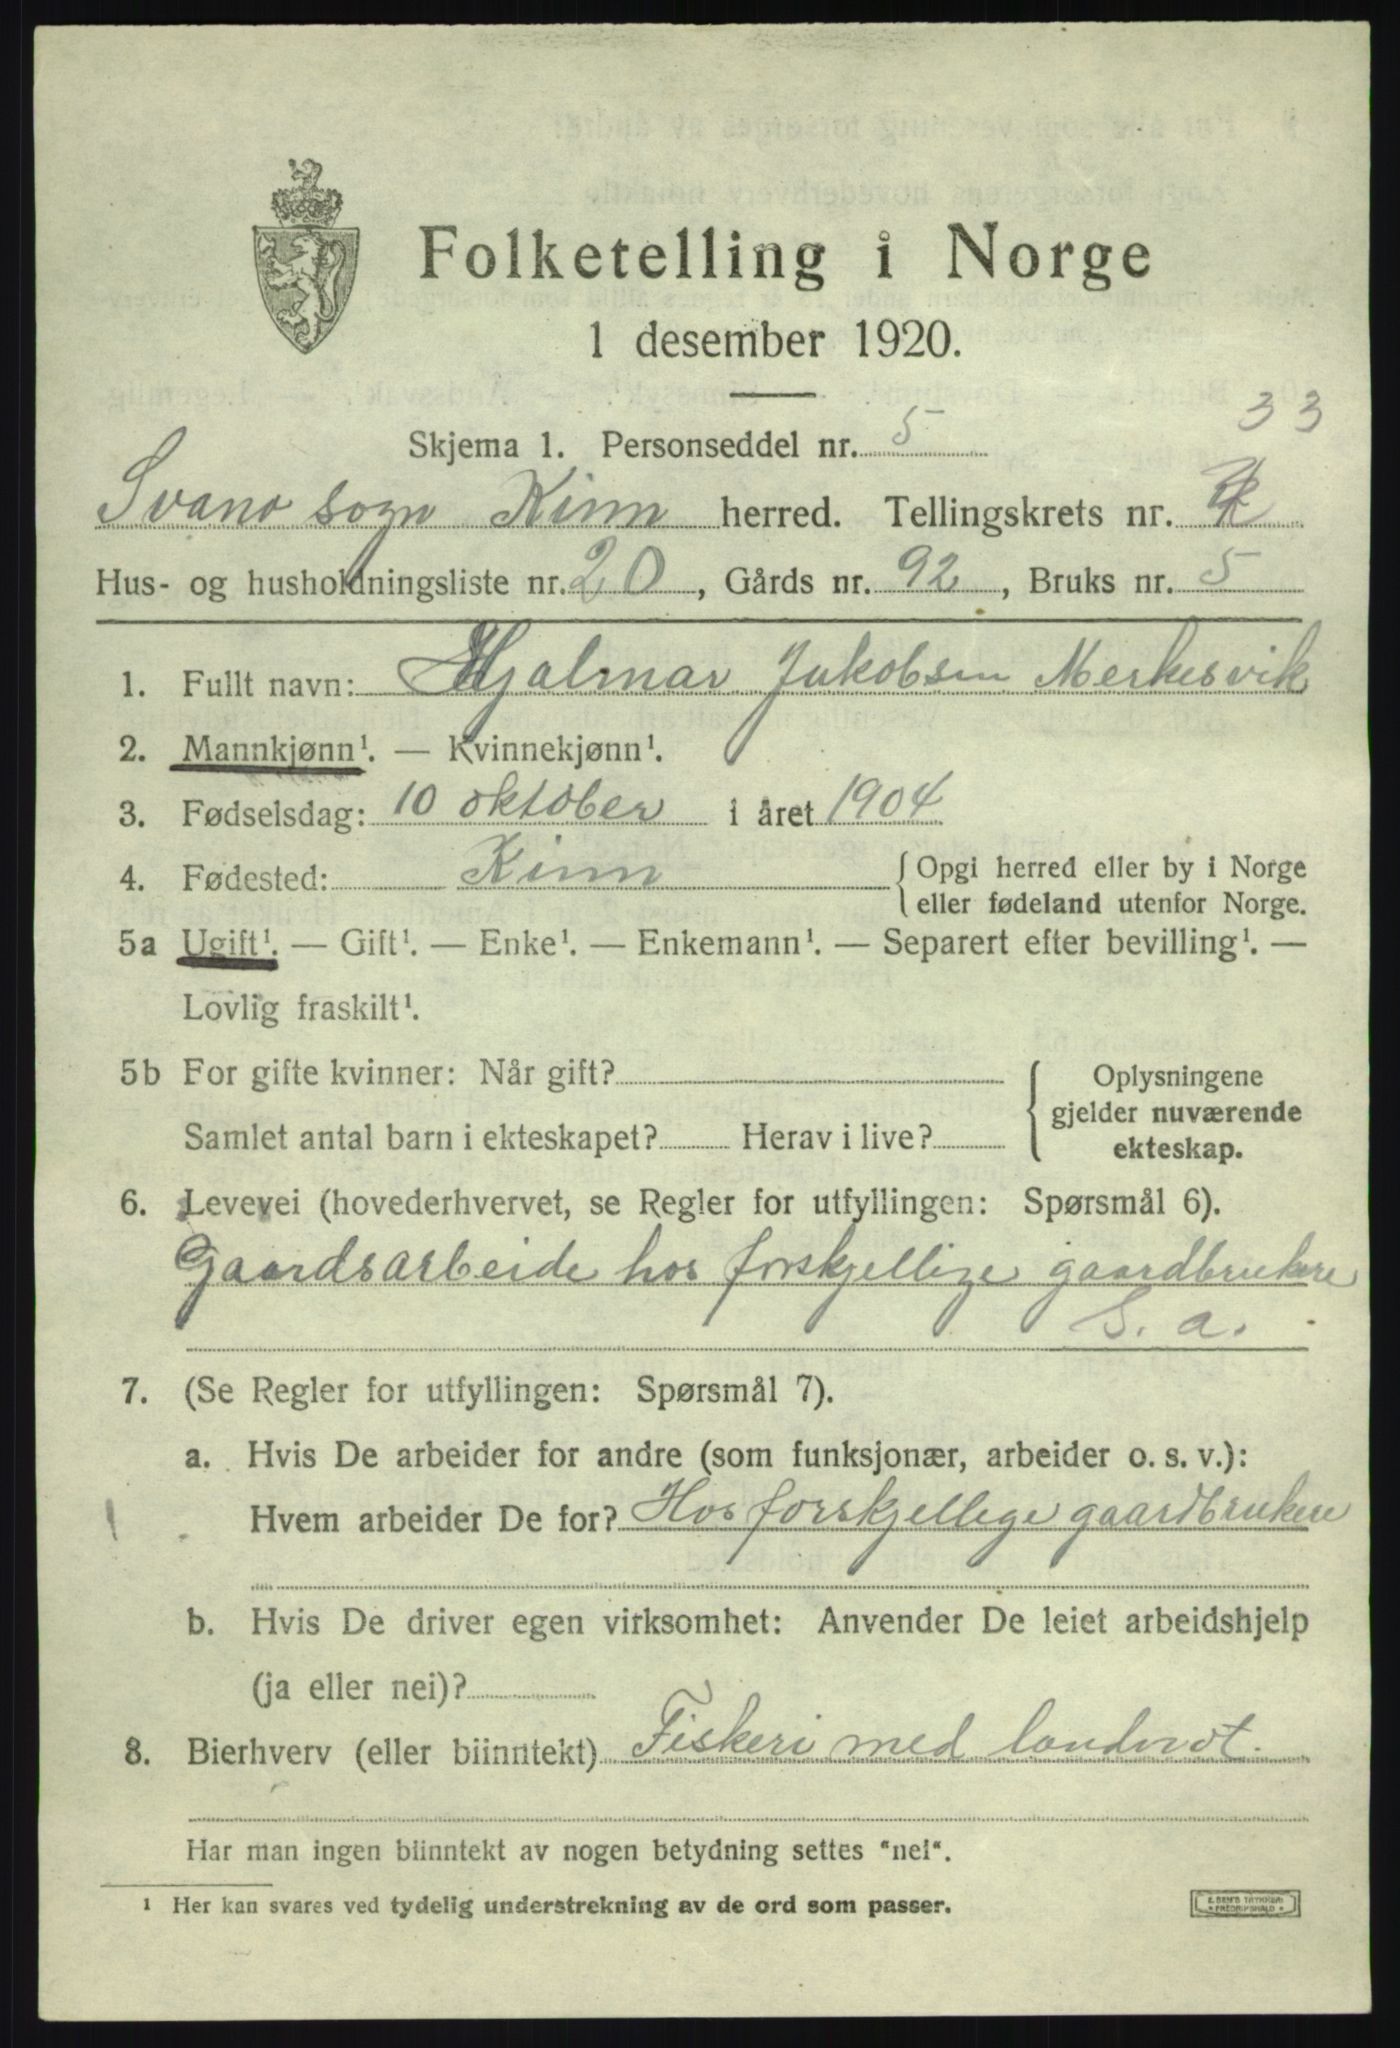 Folketelling i Norge
1 desember 1920.
33
Skjema 1. Personseddel nr. 5
Svanø sogn Kinn herred. Tellingskrets nr.
Hus- og husholdningsliste nr. 20, Gårds nr. 92, Bruks nr. 5
1. Fullt navn: Hjalmar Jakobsen Merkesvik
2. Mannkjønn¹. — Kvinnekjønn¹.
3. Fødselsdag: 10 oktober i året 1904
4. Fødested: Kinn { Opgi herred eller by i Norge
eller fødeland utenfor Norge.
5a Ugift¹. — Gift¹. — Enke¹. — Enkemann¹. — Separert efter bevilling¹. —
Lovlig fraskilt¹.
5b For gifte kvinner: Når gift?
Samlet antal barn i ekteskapet? Herav i live?
Oplysningene
gjelder nuværende
ekteskap.
6. Levevei (hovederhvervet, se Regler for utfyllingen: Spørsmål 6).
Gaardsarbeide hos forskjellige gaardbrukere
S. a.
7. (Se Regler for utfyllingen: Spørsmål 7).
a. Hvis De arbeider for andre (som funksjonær, arbeider o. s. v.):
Hvem arbeider De for? Hos forskjellige gaardbrukere
b. Hvis De driver egen virksomhet: Anvender De leiet arbeidshjelp
(ja eller nei)?
8. Bierhverv (eller biinntekt) Fiskeri med landnot.
Har man ingen biinntekt av nogen betydning settes "nei".
1 Her kan svares ved tydelig understrekning av de ord som passer.